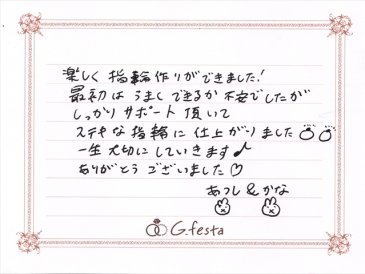 楽しく指輪作りができました!
最初はうまくできるか不安でしたが
しっかりサポート頂いて
ステキな指輪に仕上がりました
一生大切にしていきます♪
ありがとうございました♡
あつし&かな
G.festa